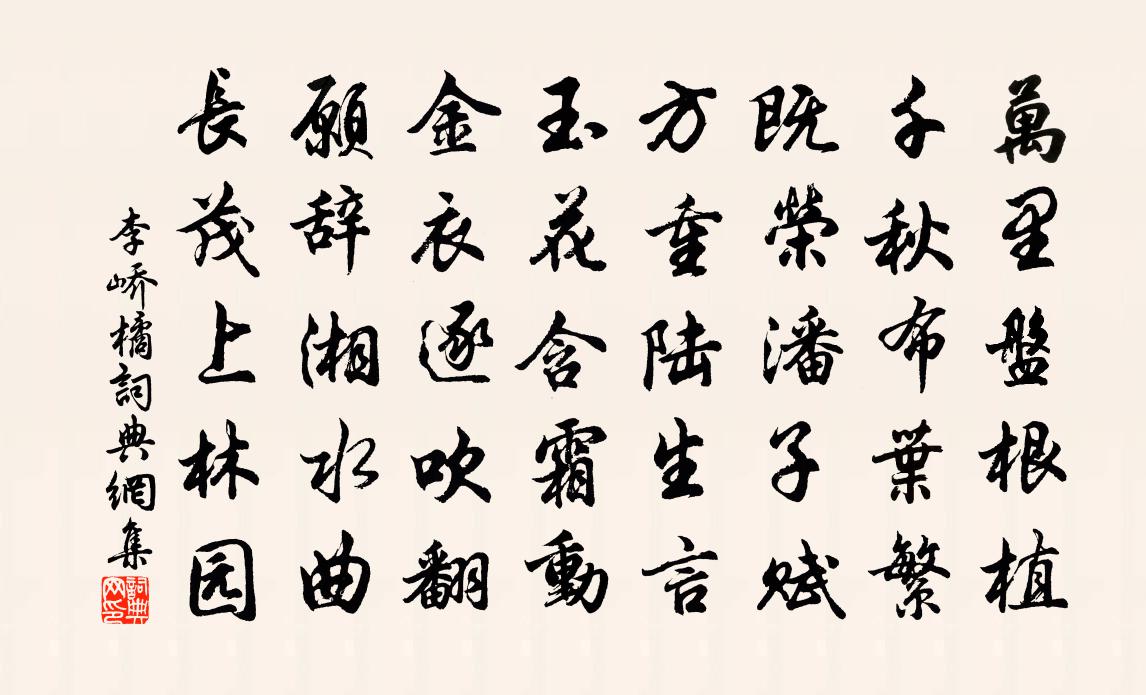 萬里盤根植
千秋布葉繁
既榮潘子賦
方重陆生言
玉花含霜動
金衣逐吹翻
願辞湘水曲
長茂上林园
李嶠橘詞典網集
詞典网印